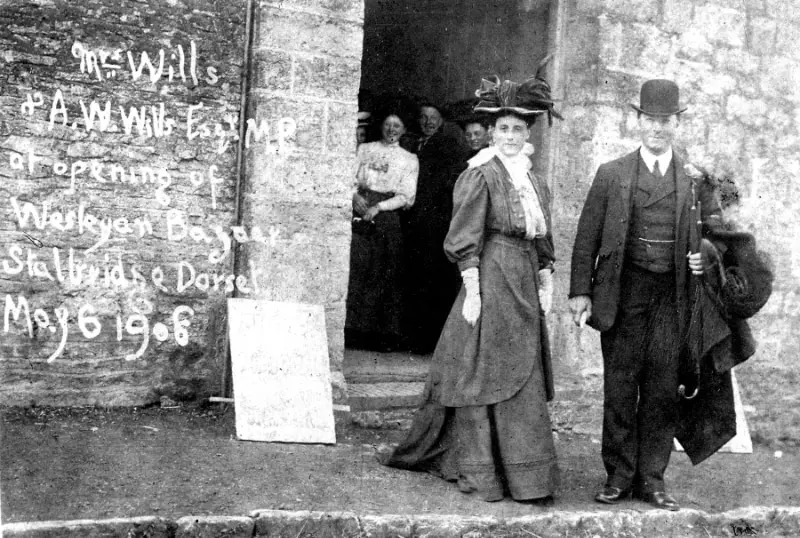 Mrs Wills
& A. W. Wills Esqr. MP
at opening of
Wesleyan Bazaar
Stalbridge Dorset
May 6 1908